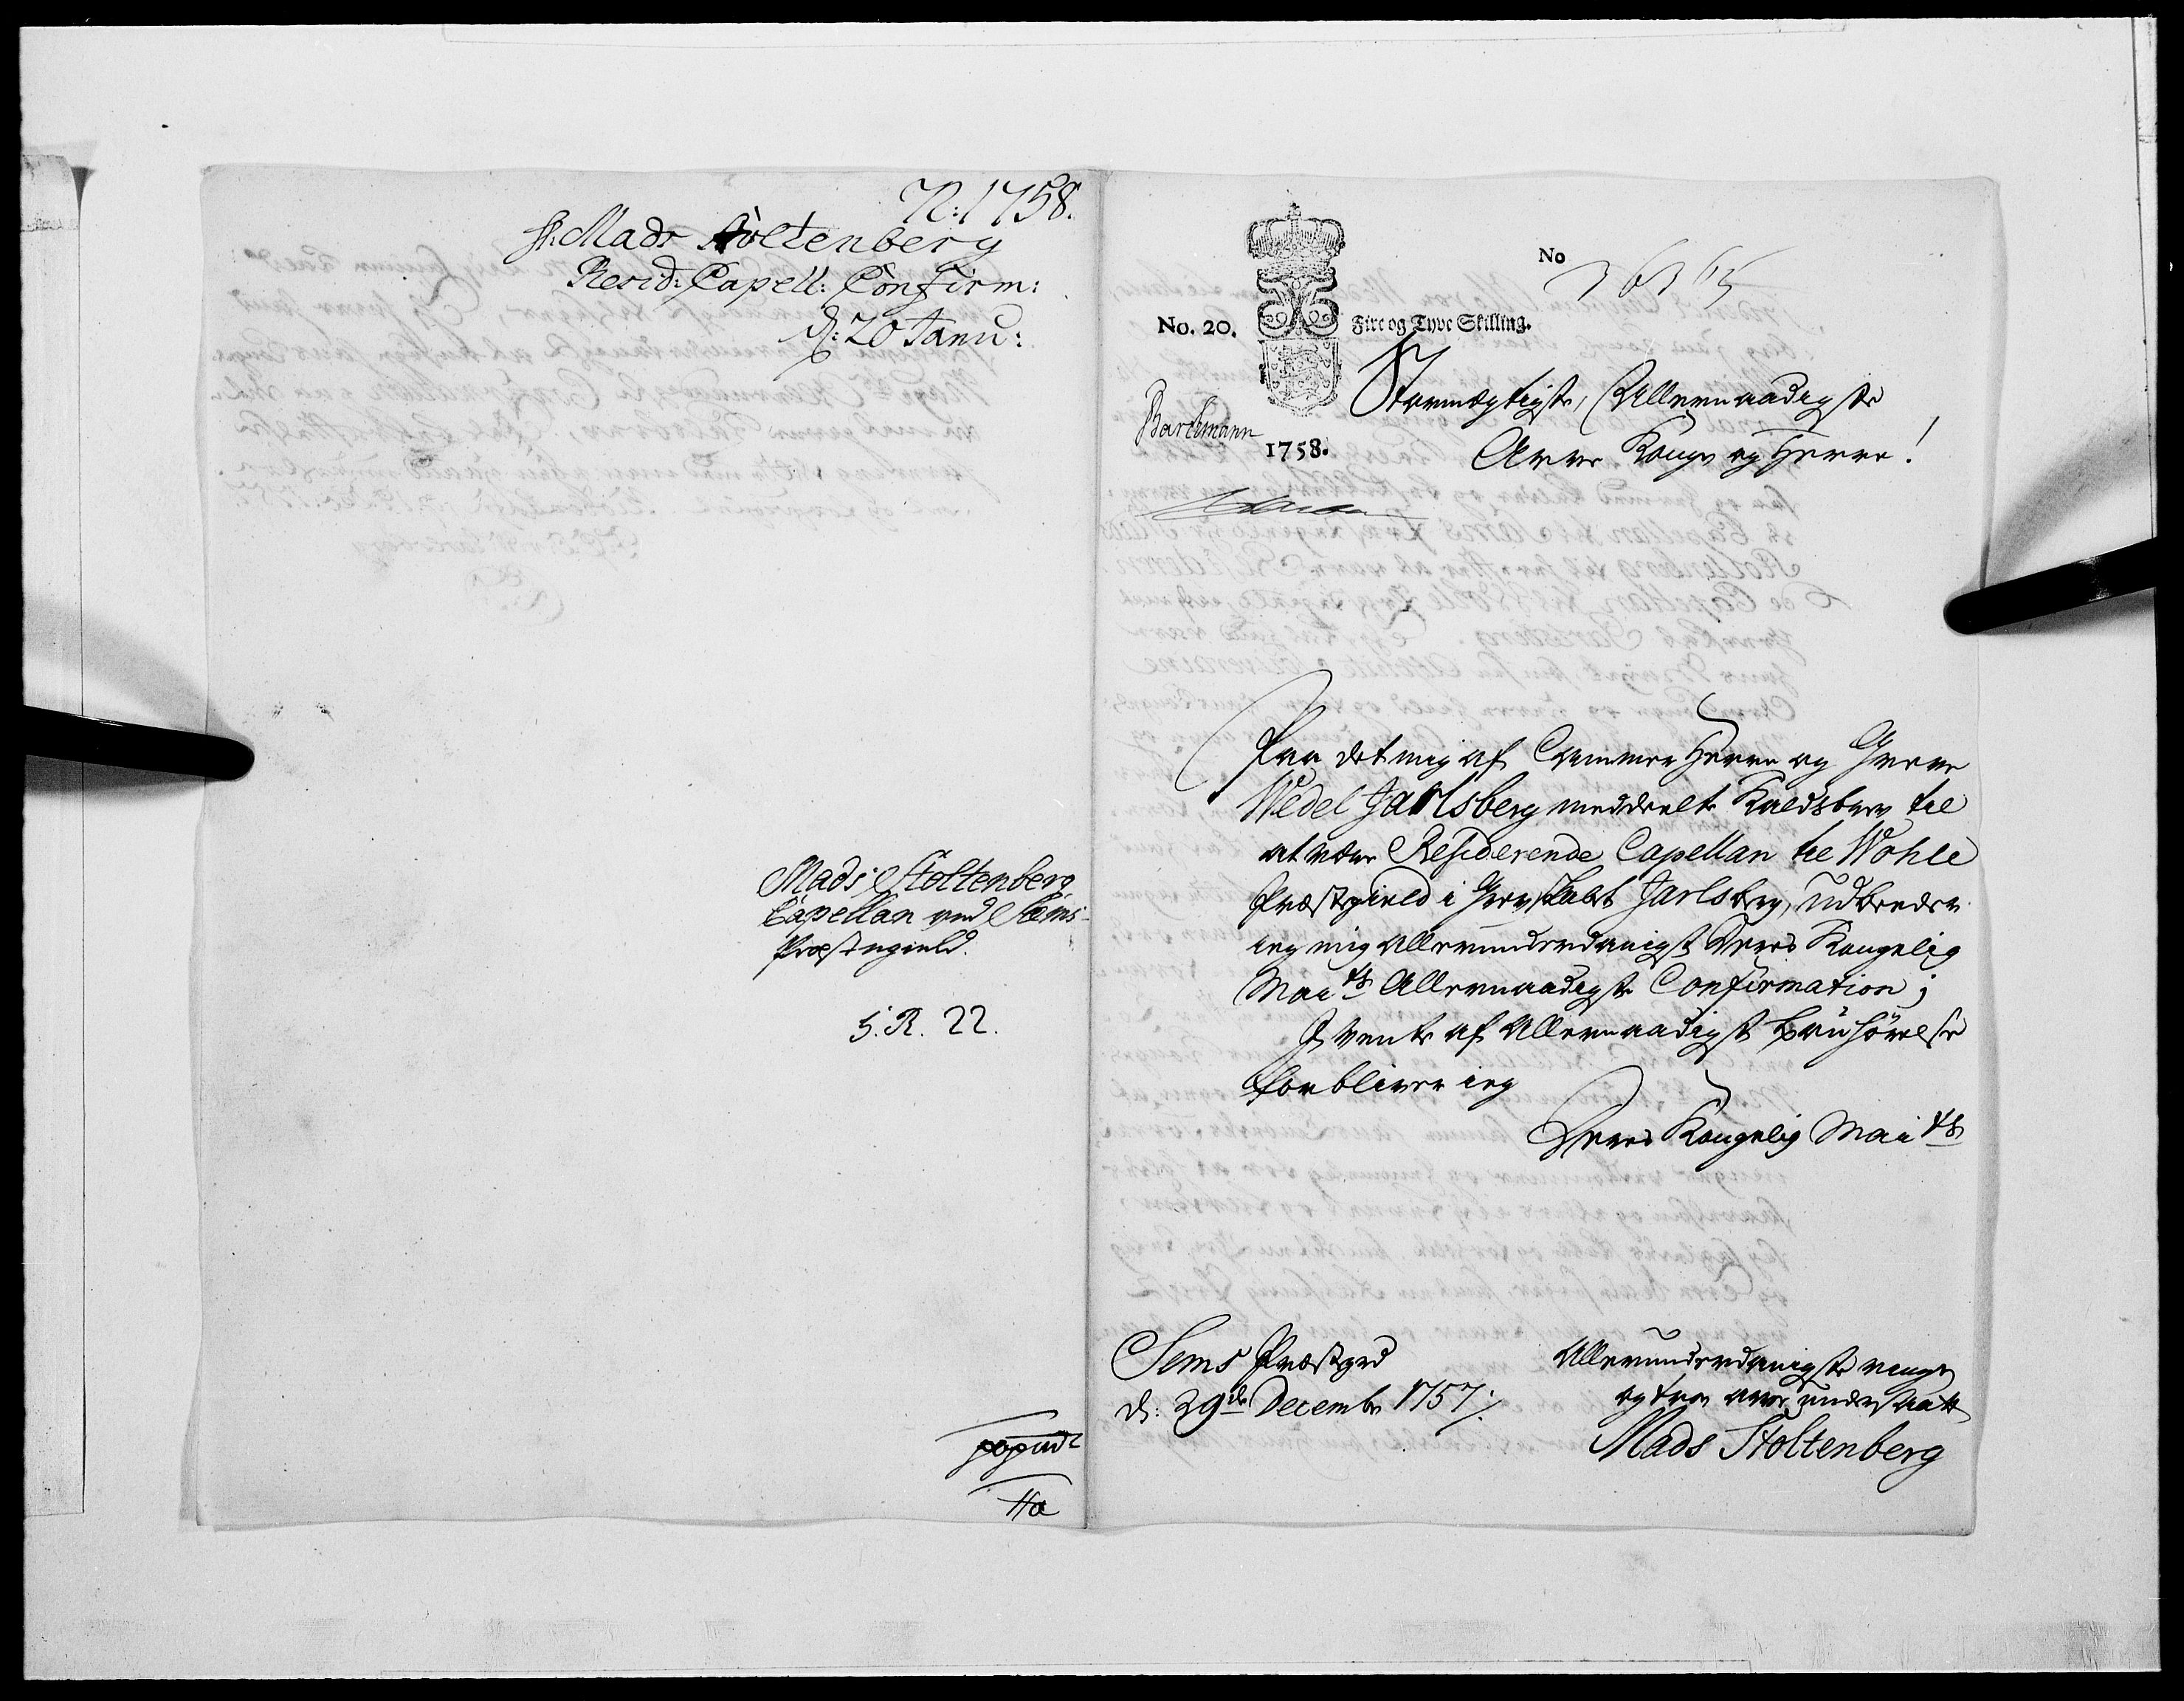 N: 1758.
Hr. Mads Stoltenberg
Resid: Capell: Confirm:
d: 20 Janu:
Mads Stoltenberg
Capellan ved Sems
Præstegield.
S. R. 22.
No
No. 20.
Fire og Tyve Skilling.
1758.
Bartmann
Stormægtigste, Allernaadigste
Arve Konge og Herre!
Paa det mig af Cammer Herre og Greve
Wedel Jarlsberg meddeelte Kaldsbrev til
at være Residerende Capellan til Wohle
Præstegield i Grevskabet Jarlsberg, udbeder
ieg mig allerunderdanigst Deres Kongelig
Mai ts Allernaadigste Confirmation;
I vente af Allernaadigst bønhørelse
forbliver ieg
Deres Kongelig Mai ts
Sems Præstegrd
d: 29de Decembr 1757.
Allerunderdanigste ringe
og troe arve undersaatt
Mads Stoltenberg